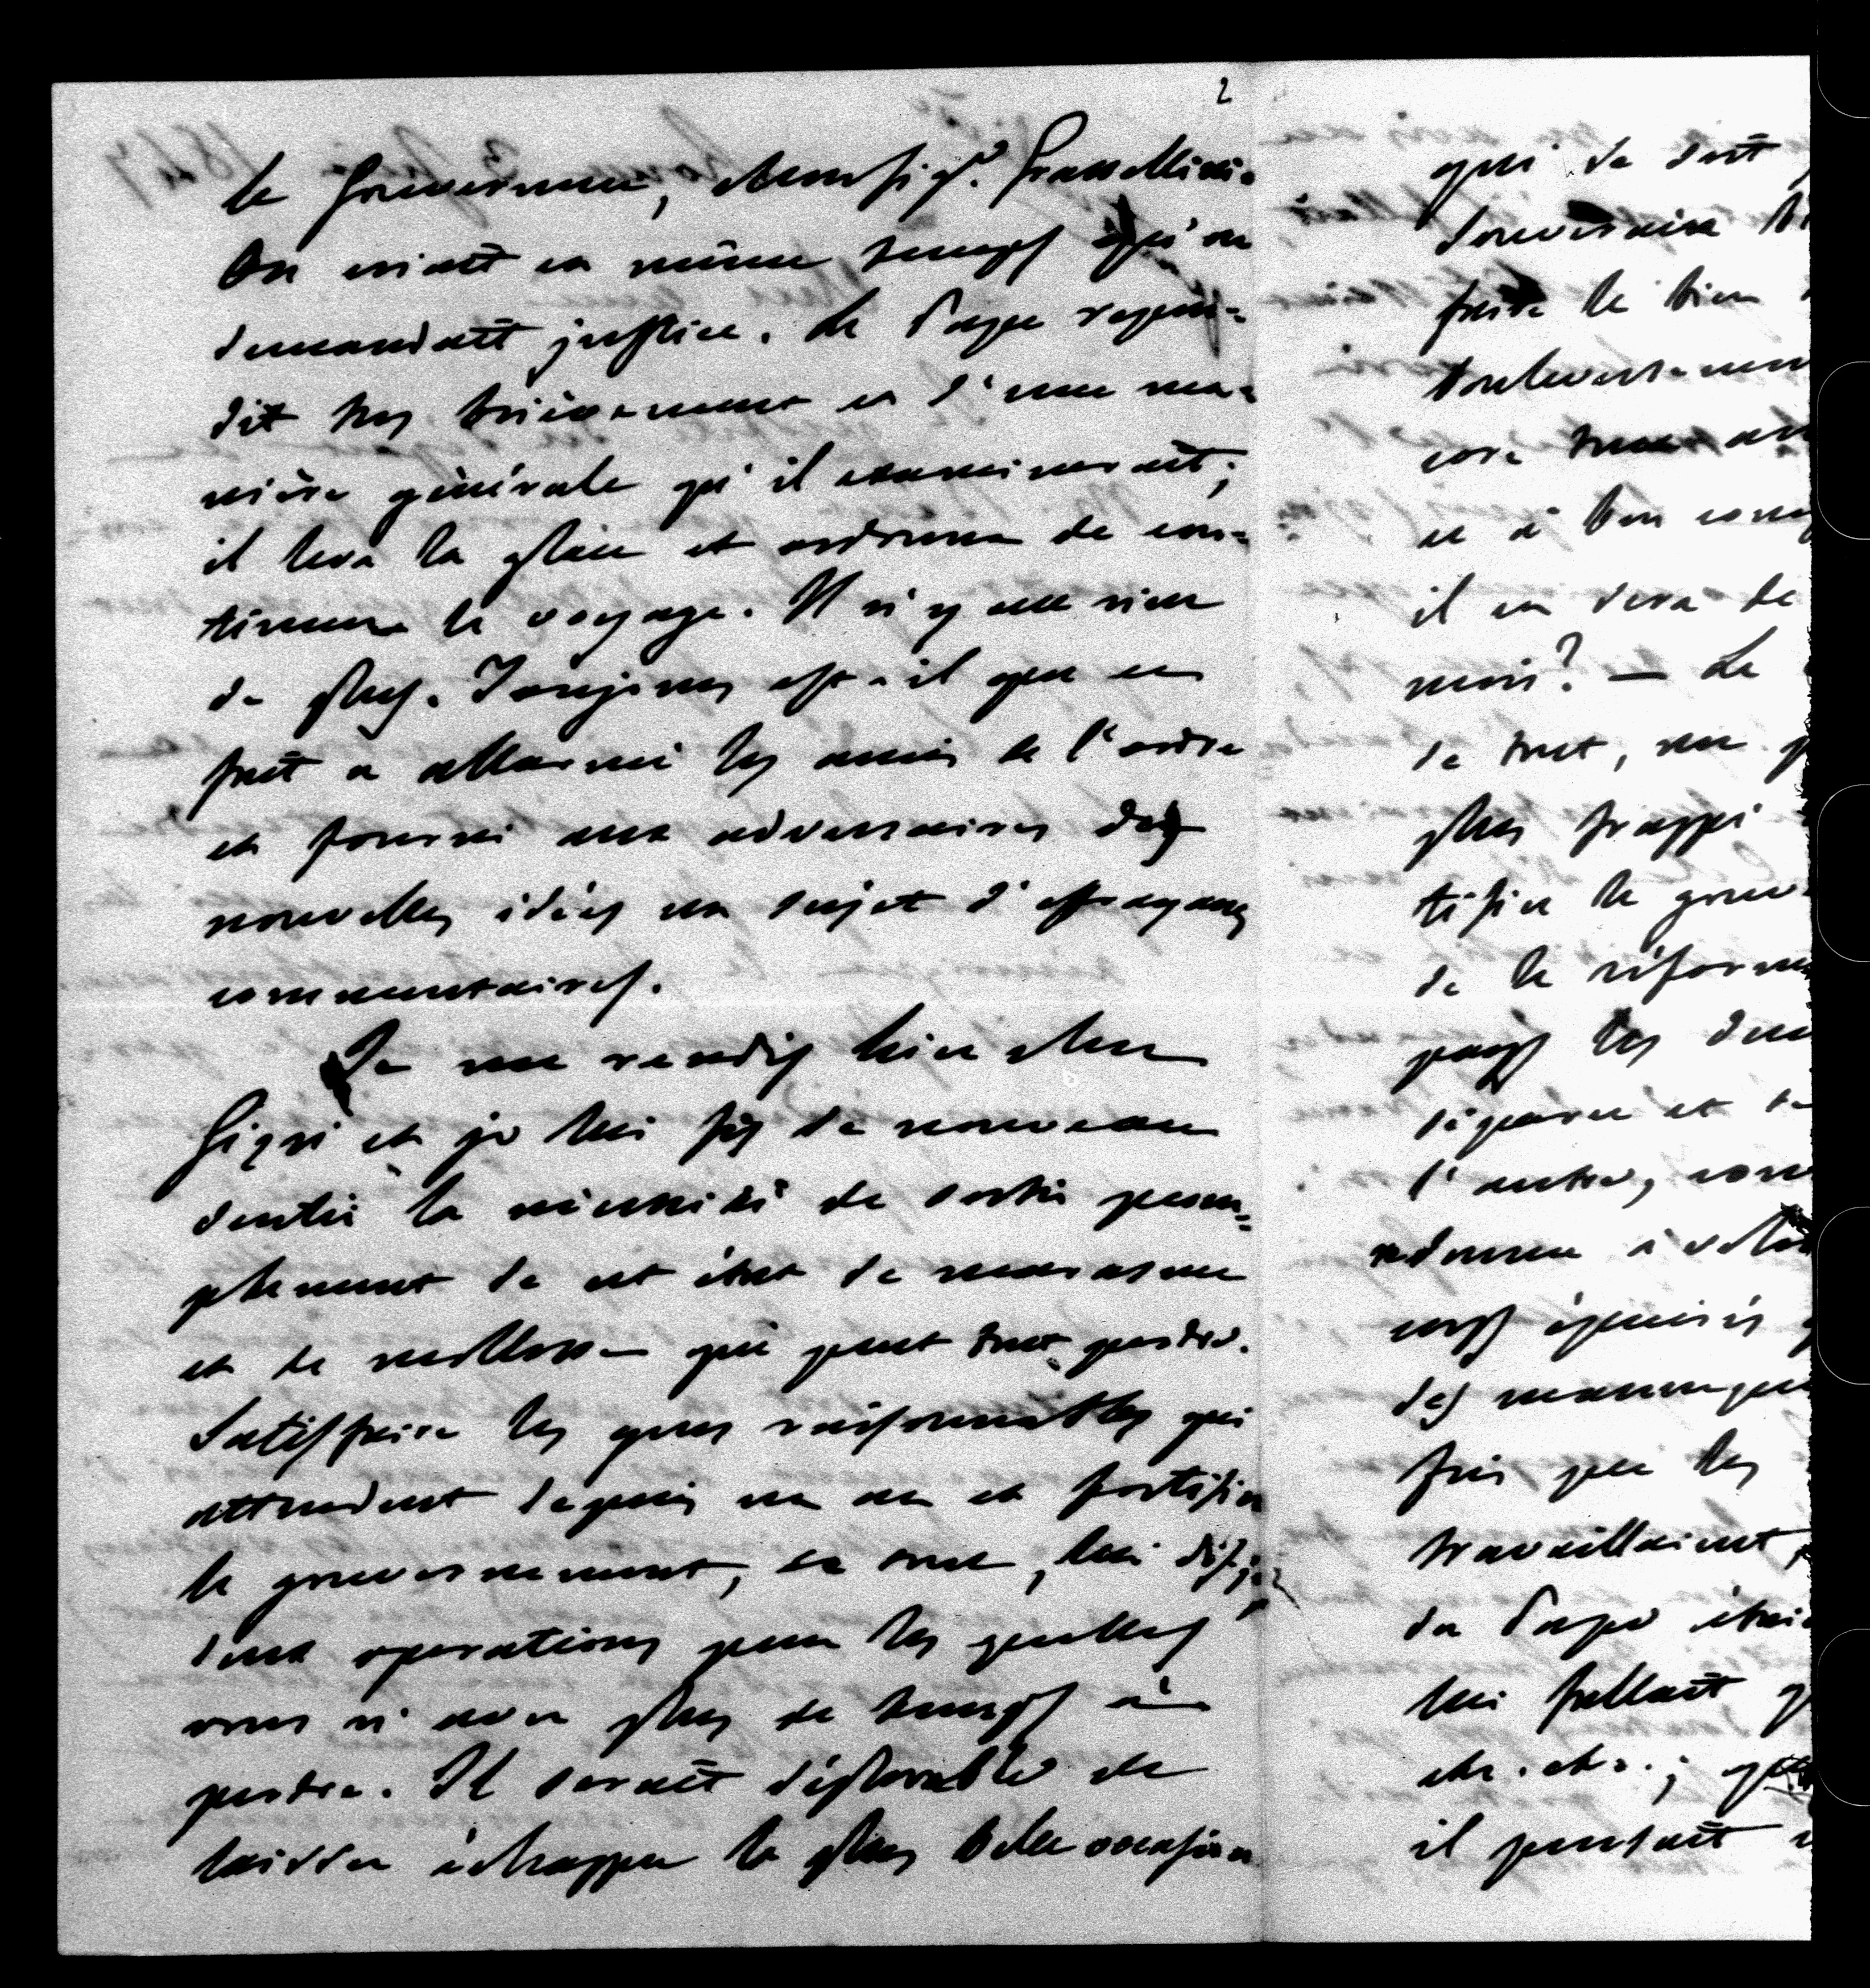 2
le Gouverneur, Monsig.r Grassellini.
On criait en même temps qu'on
demandait justice. Le Pape repon=
dit très brièvement et d'une ma=
nière générale qu'il examinerait;
il leva la glace et ordonna de con=
tinuer le voyage. Il n'y eut rien
de plus. Toujours est-il que ce
fait a allarmé les amis de l'ordre
et fourni aux adversaires des
nouvelles idées un sujet d'effrayans
commentaires.
Je me rendis hier chez
Gizzi et je lui fis de nouveau
sentir la nécessité de sortir prom=
ptement de cet état de marasme
et de mollesse qui peut tout perdre.
Satisfaire les gens raisonnables qui
attendent depuis un an et fortifier
le gouvernement, ce sont, lui dis-je
deux operations pour les quelles
vous n'avez plus de temps à
perdre. Il serait déplorable de
laisser échapper la plus belle occasion
qui se soit
souverain
faire le bien
bouleversemen
core
ce à bon com
il en sera de
moi? — Le
de tout, un
plus frappé
tifier le gouv
de la réforme
pays les deu
séparer et
l'autre, com
redonner à
corps épuisés
des
fois que les
travaillaient,
du Pape
lui fallait
etc. etc.;
il pensait